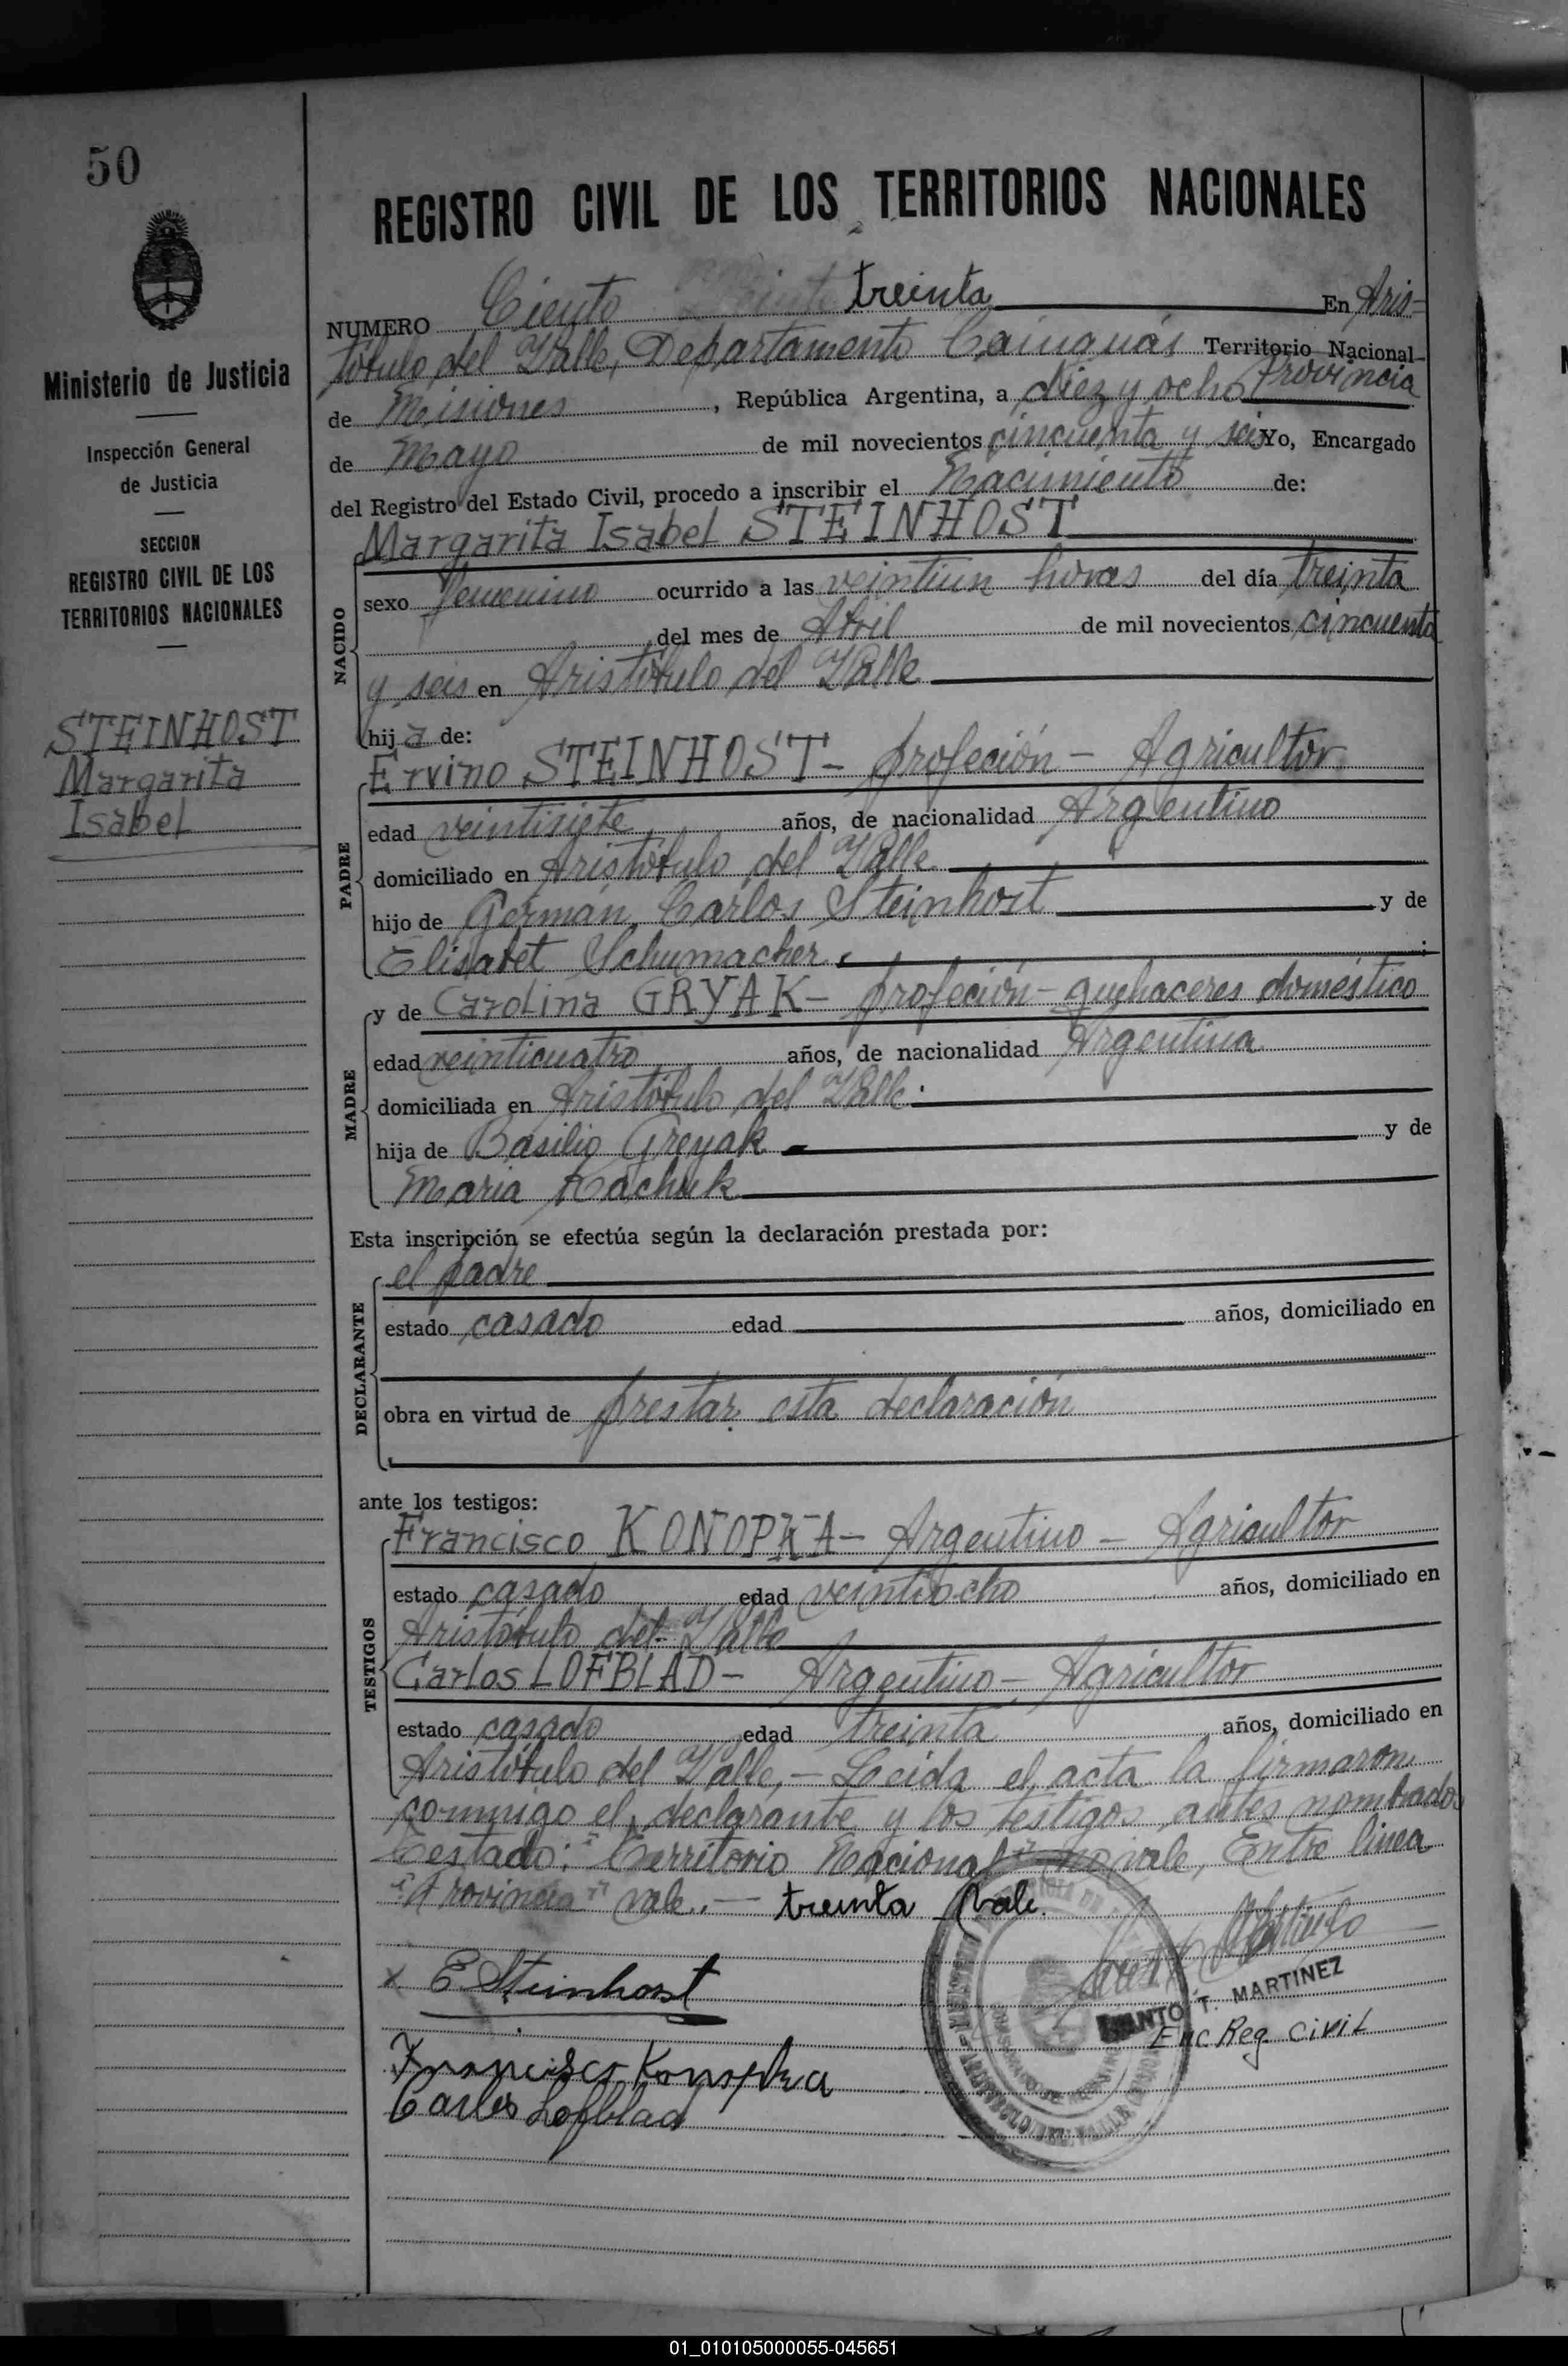 50
Ministerio de Justicia
Inspección General
de Justicia
SECCION
REGISTRO CIVIL DE LOS
TERRITORIOS NACIONALES
STEINHOST
Margarita
Isabel
REGISTRO CIVIL DE LOS TERRITORIOS NACIONALES
NUMERO Ciento treinta En Aris-
tóbulo del Valle, Departamento Cainguás Territorio Nacional
Provincia
de Misiones, República Argentina, a diez y ocho
de Mayo de mil novecientos cincuenta y seis Yo, Encargado
del Registro del Estado Civil, procedo a inscribir el Nacimiento de:
Margarita Isabel STEINHOST
NACIDO
sexo femenino ocurrido a las veintiun horas del día treinta
del mes de Abril de mil novecientos cincuenta
y seis en Aristóbulo del Valle
hij a de:
PADRE
Ervino STEINHOST - profeción - Agricultor
edad veintisiete años, de nacionalidad Argentino
domiciliado en Aristóbulo del Valle
hijo de Germán Carlos Steinhost y de
Elisabet Schumacher.
MADRE
y de Carolina GRYAK - profeción - quehaceres doméstico
edad veinticuatro años, de nacionalidad Argentina
domiciliada en Aristóbulo del Valle.
hija de Basilio Greyak y de
Maria Kachuk
Esta inscripción se efectúa según la declaración prestada por:
DECLARANTE
el padre
estado casado edad años, domiciliado en
obra en virtud de prestar esta declaración
ante los testigos:
TESTIGOS
Francisco KONOPKA - Argentino - Agricultor
estado casado edad veintiocho años, domiciliado en
Aristóbulo del Valle
Carlos LOFBLAD - Argentino - Agricultor
estado casado edad treinta años, domiciliado en
Aristóbulo del Valle, - Leida el acta la firmaron
conmigo el declarante y los testigos antes nombrados
Testado: "Territorio Nacional" no vale, Entre linea
"Provincia" vale. - treinta vale.
x E. Steinhorst
Francisco Konopka
Carlos Lofblad
T. MARTINEZ
Enc Reg. Civil
01_010105000055-045651